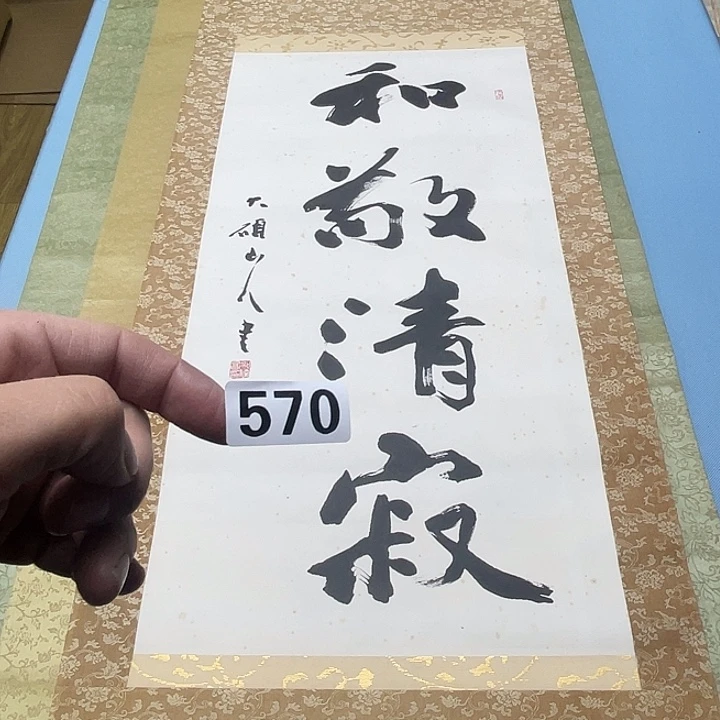 和敬清寂
大碩山人書
570